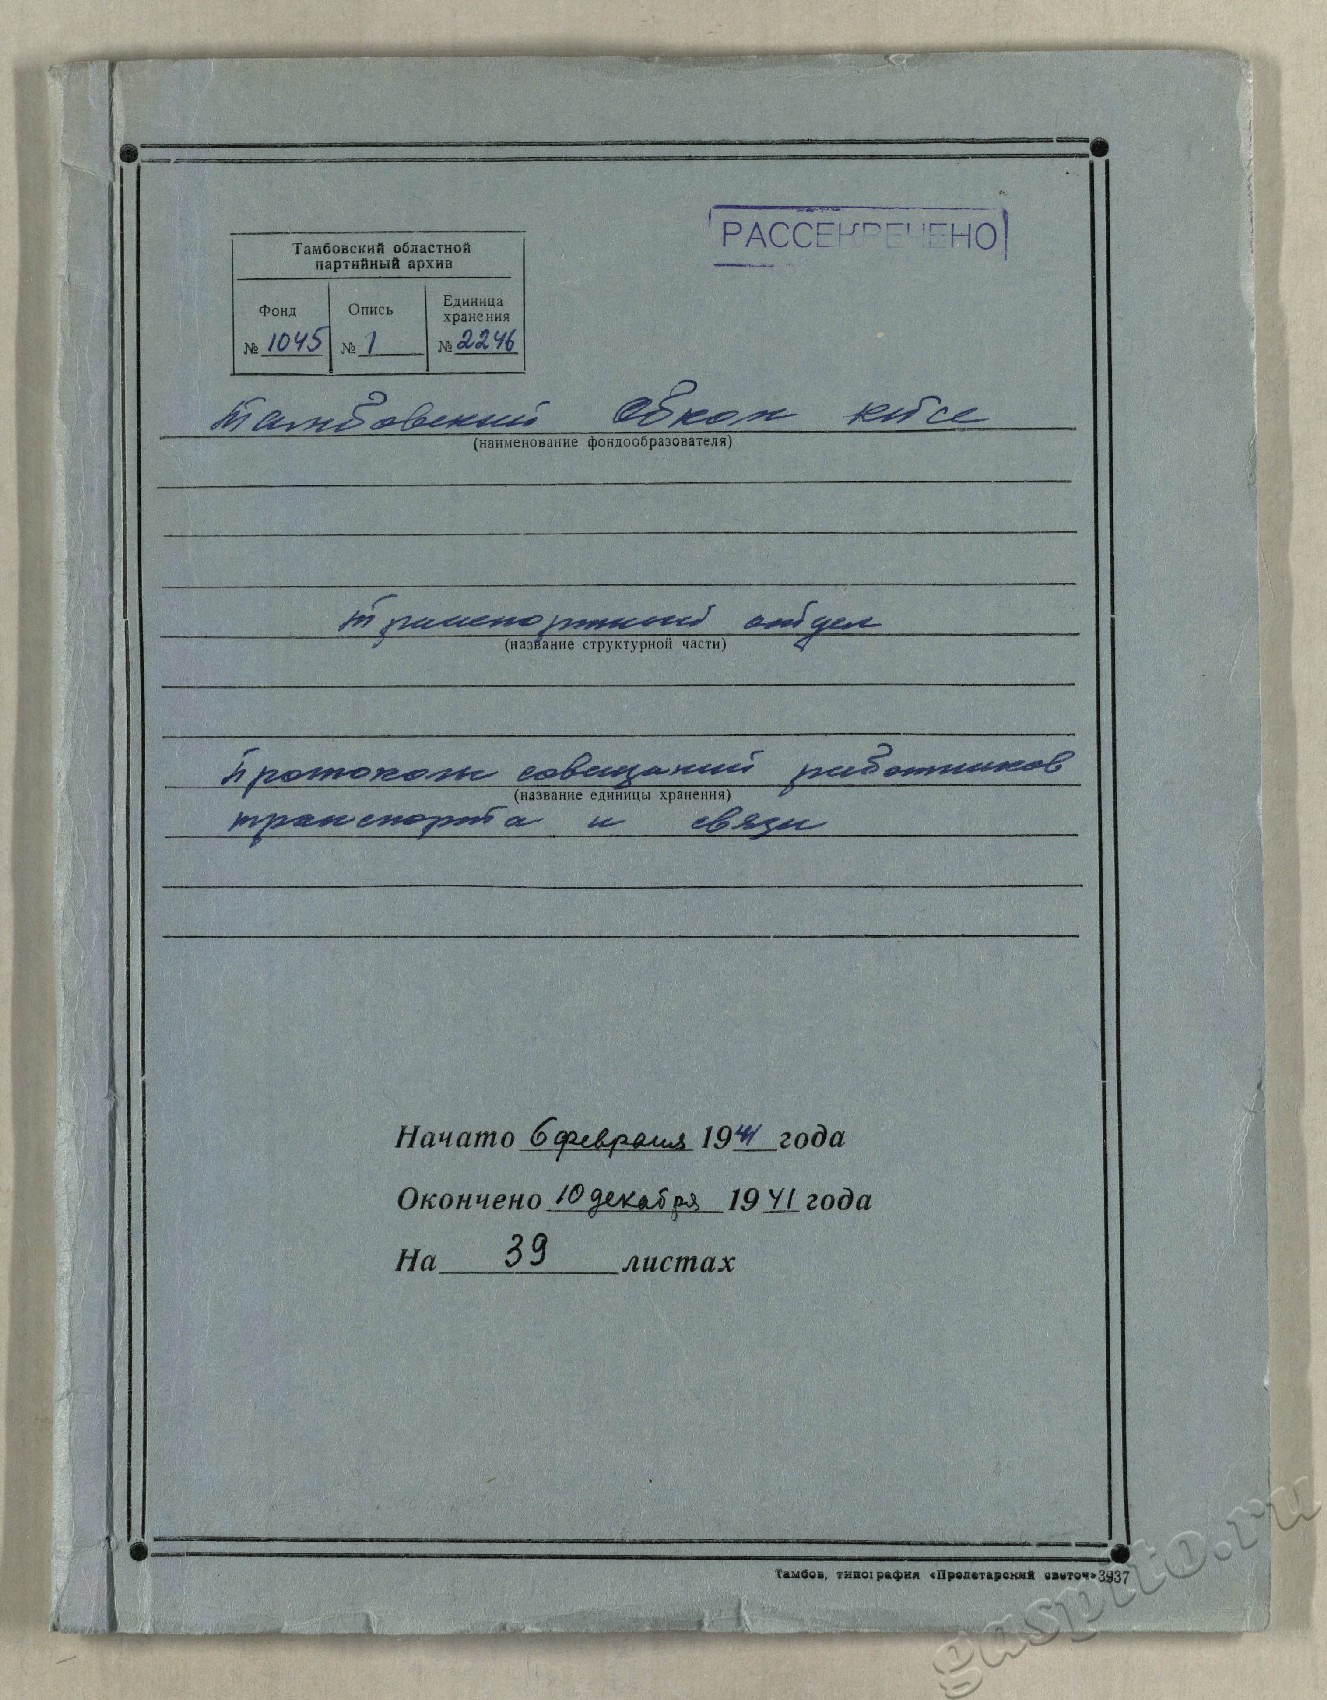 РАССЕКРЕЧЕНО
Тамбовский областной
партийный архив
Фонд
№ 1045
Опись
№ 1
Единица
хранения
№ 2246
Тамбовский Обком КПСС
(наименование фондообразователя)
Транспортный отдел
(название структурной части)
Протоколы совещаний работников
(название единицы хранения)
транспорта и связи
Начато 6 февраля 1941 года
Окончено 10 декабря 1941 года
На 39 листах
Тамбов, типография «Пролетарский светоч» 3937
gaspito.ru